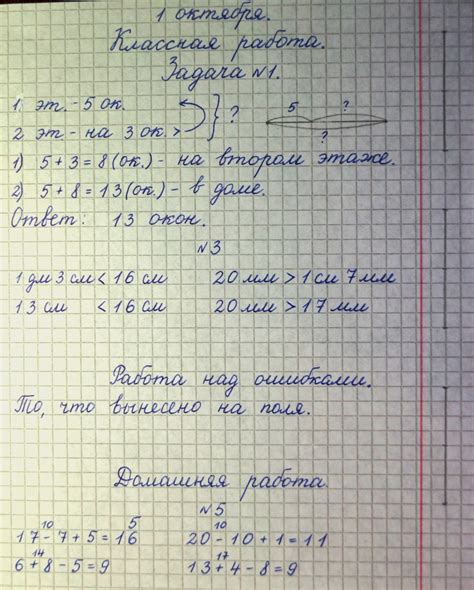 1 октября.
Классная работа.
Задача №1.
1 эт. - 5 ок.
2 эт - на 3 ок. > } ? 5 ? ?
1) 5 + 3 = 8 (ок.) - на втором этаже.
2) 5 + 8 = 13 (ок.) - в доме.
Ответ: 13 окон.
№3
1 дм 3 см < 16 см 20 мм > 1 см 7 мм
13 см < 16 см 20 мм > 17 мм
Работа над ошибками.
То, что вынесено на поля.
Домашняя работа.
№5
10 5 10
17 - 7 + 5 = 16 20 - 10 + 1 = 11
14 17
6 + 8 - 5 = 9 13 + 4 - 8 = 9